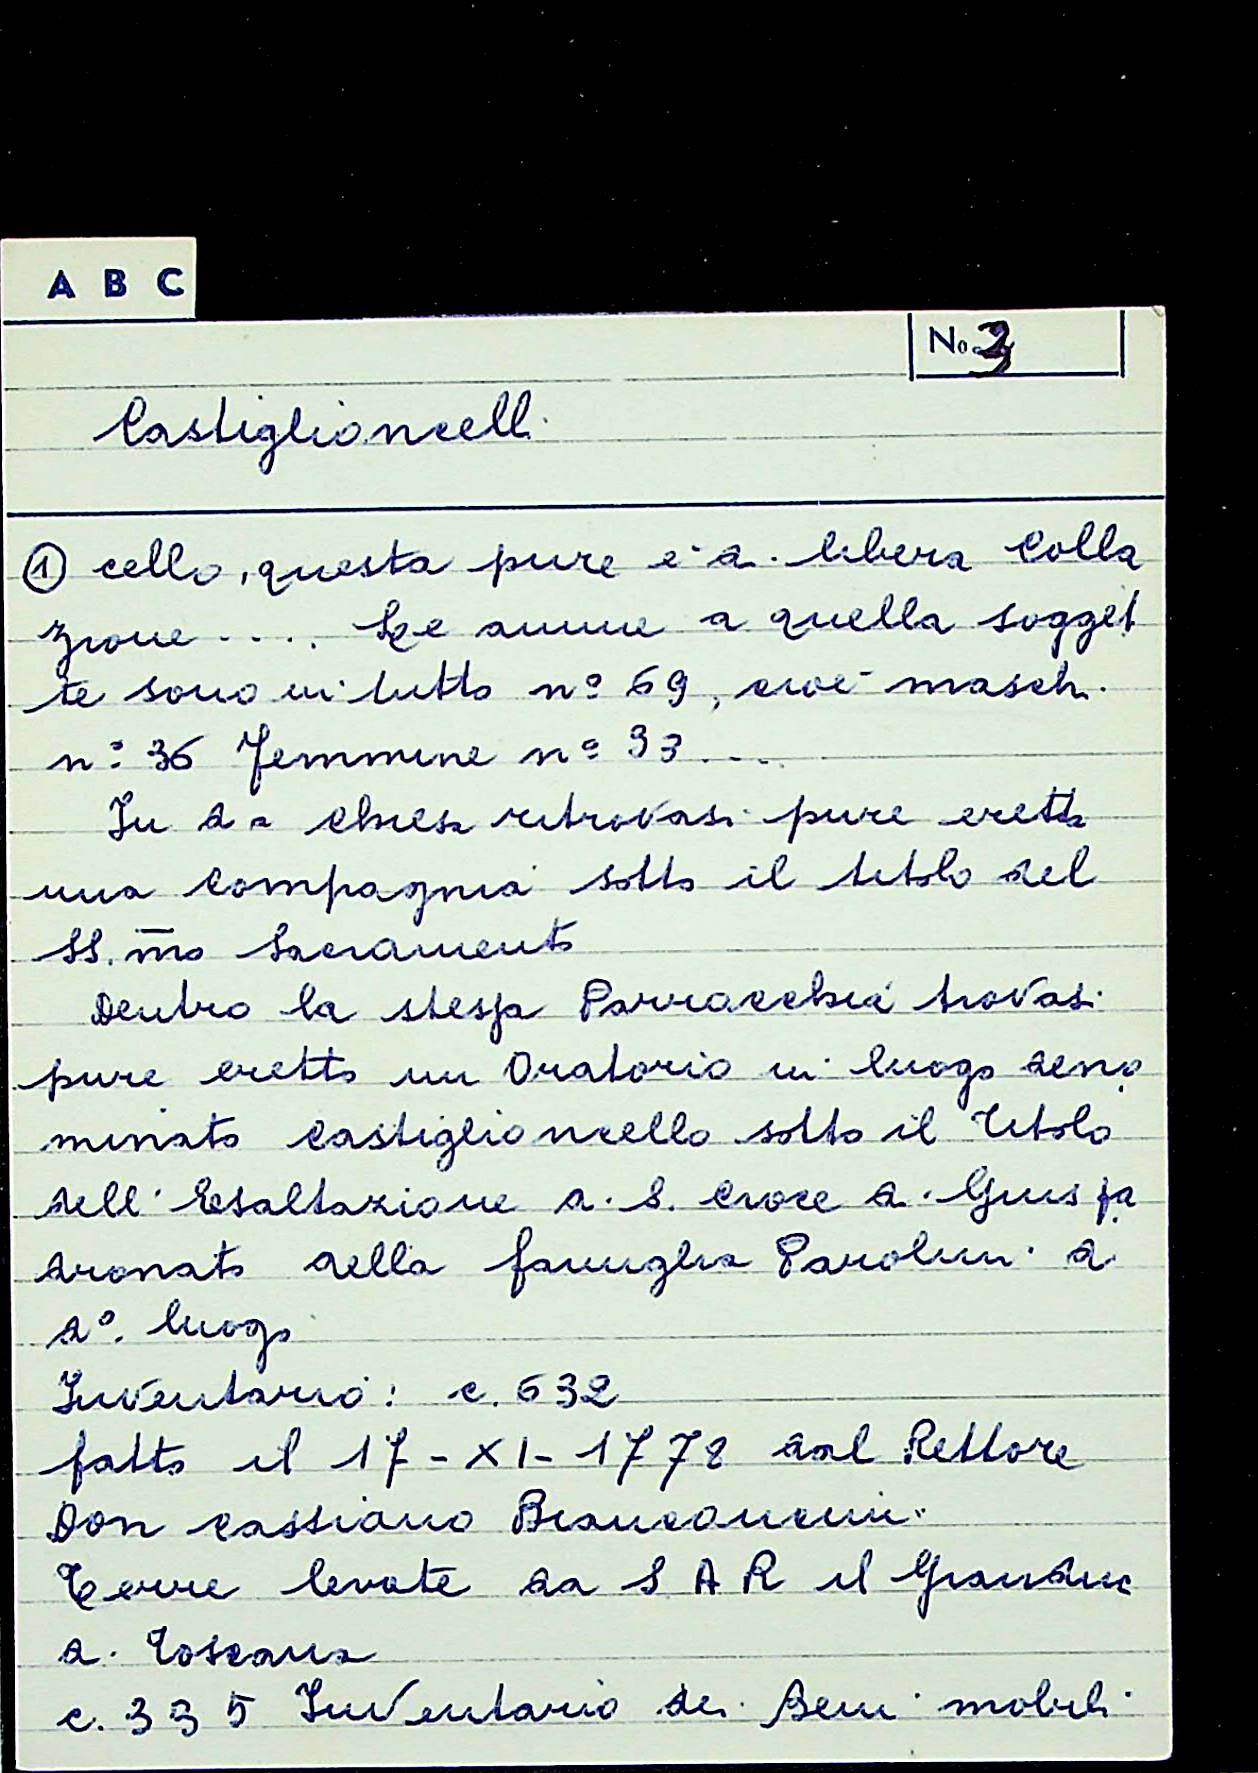 A B C
No. 3
Castiglioncell.
① cello, questa pure è di libera Colla
zione .... Le anime a quella sogget
te sono in tutto nº 69, cioè masch.
nº 36 Femmine nº 33 ....
In da chiesa ritrovasi pure eretta
una Compagnia sotto il titolo del
SS.mo Sacramento
Dentro la stessa Parrocchia trovasi
pure eretto un Oratorio in luogo deno
minato Castiglioncello sotto il Titolo
dell'Esaltazione d. S. Croce di Gius pa
dronato della famiglia Parolini di
dº. luogo
Inventario: c. 632
fatto il 17-XI-1778 dal Rettore
Don Cassiano
Terre levate da S A R il Granduc
di Toscana
c. 335 Inventario dei Beni mobili